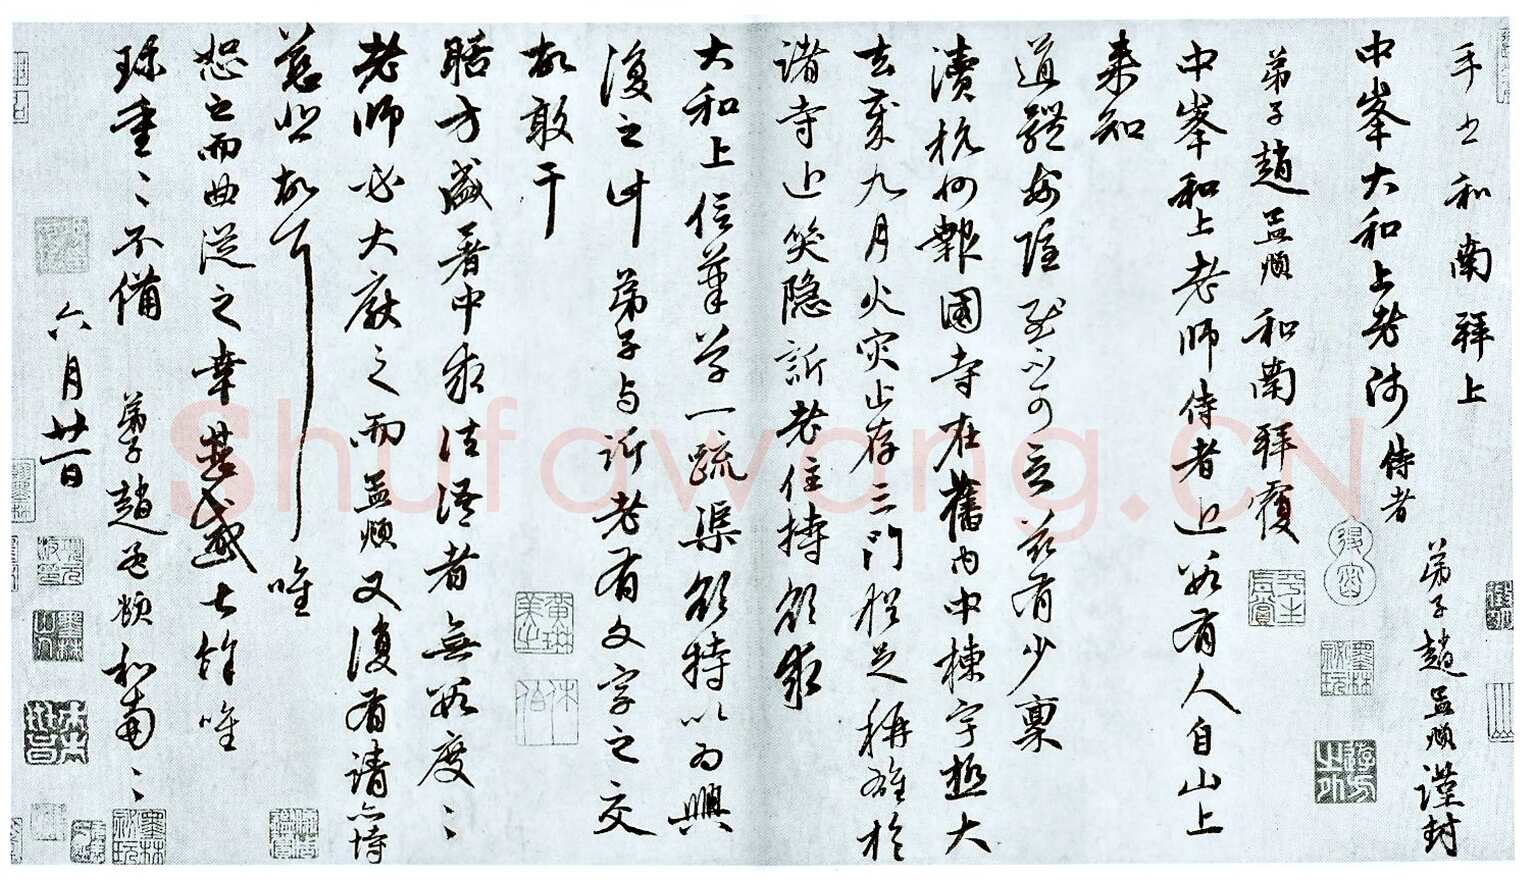 手書和南拜上
中峯大和上老師侍者
弟子趙孟頫謹封
弟子趙孟頫和南拜覆
中峯和上老師侍者近數有人自山上
來知
道體安隱慰不可言茲有少稟
瀆杭州報國寺在舊內中棟宇極大
去歲九月火灾止存三門猶足稱雄於
諸寺近笑隱訢老住持欲求
大和上信筆學一疏渠欲持以為興
復之計弟子与訢老有文字之交
故敢干
聒方盛暑中求法語者無數度々
老師必大厭之而孟頫又復有請亦恃
慈悲故耳唯
恕之而曲從之幸甚感甚餘唯
珎重々不備 弟子趙孟頫和南々
六月廿一日
Shufawang.CN